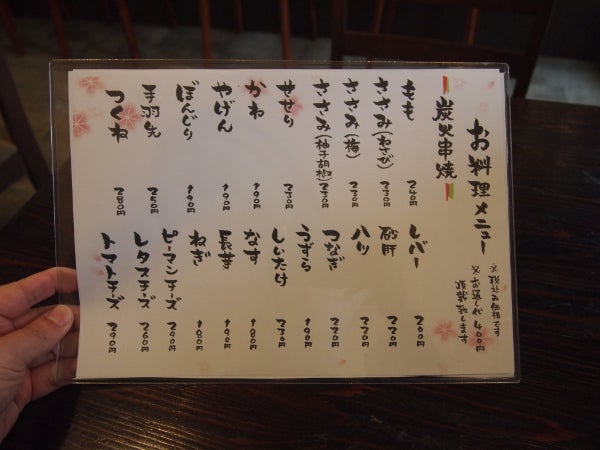 お料理メニュー
※税込み価格です
※お通し代400円
頂戴致します
炭火串焼
もも 240円
ささみ(わさび) 250円
ささみ(梅) 250円
ささみ(柚子胡椒) 250円
せせり 250円
かわ 190円
やげん 190円
ぼんじり 190円
手羽先 250円
つくね 280円
レバー 200円
砂肝 220円
ハツ 220円
つなぎ 220円
うずら 220円
しいたけ 230円
なす 180円
長芋 190円
ねぎ 180円
ピーマンチーズ 260円
レタスチーズ 260円
トマトチーズ 290円